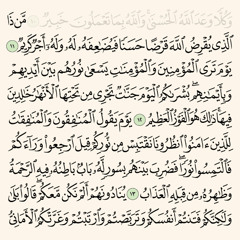 وَكُلًّا وَعَدَ ٱللَّهُ ٱلْحُسْنَىٰ وَٱللَّهُ بِمَا تَعْمَلُونَ خَبِيرٌ ١٠ مَّن ذَا
ٱلَّذِى يُقْرِضُ ٱللَّهَ قَرْضًا حَسَنًا فَيُضَٰعِفَهُۥ لَهُۥ وَلَهُۥٓ أَجْرٌ كَرِيمٌ ١١
يَوْمَ تَرَى ٱلْمُؤْمِنِينَ وَٱلْمُؤْمِنَٰتِ يَسْعَىٰ نُورُهُم بَيْنَ أَيْدِيهِمْ
وَبِأَيْمَٰنِهِم بُشْرَىٰكُمُ ٱلْيَوْمَ جَنَّٰتٌ تَجْرِى مِن تَحْتِهَا ٱلْأَنْهَٰرُ خَٰلِدِينَ
فِيهَا ذَٰلِكَ هُوَ ٱلْفَوْزُ ٱلْعَظِيمُ ١٢ يَوْمَ يَقُولُ ٱلْمُنَٰفِقُونَ وَٱلْمُنَٰفِقَٰتُ
لِلَّذِينَ ءَامَنُوا۟ ٱنظُرُونَا نَقْتَبِسْ مِن نُّورِكُمْ قِيلَ ٱرْجِعُوا۟ وَرَآءَكُمْ
فَٱلْتَمِسُوا۟ نُورًا فَضُرِبَ بَيْنَهُم بِسُورٍ لَّهُۥ بَابٌۢ بَاطِنُهُۥ فِيهِ ٱلرَّحْمَةُ
وَظَٰهِرُهُۥ مِن قِبَلِهِ ٱلْعَذَابُ ١٣ يُنَادُونَهُمْ أَلَمْ نَكُن مَّعَكُمْ قَالُوا۟ بَلَىٰ
وَلَٰكِنَّكُمْ فَتَنتُمْ أَنفُسَكُمْ وَتَرَبَّصْتُمْ وَٱرْتَبْتُمْ وَغَرَّتْكُمُ ٱلْأَمَانِىُّ